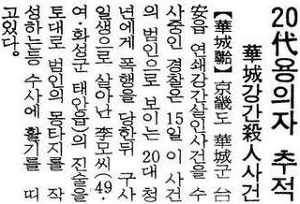 20代용의자 추적
華城강간殺人사건
【華城聯】京畿도 華城군 台
安읍 연쇄강간살인사건을 수
사중인 경찰은 15일 이 사건
의 범인으로 보이는 20대 청
년에게 폭행을 당한뒤 구사
일생으로 살아난 李모씨(49·
여·화성군 태안읍)의 진술을
토대로 범인의 몽타지를 작
성하는등 수사에 활기를 띠
고있다.